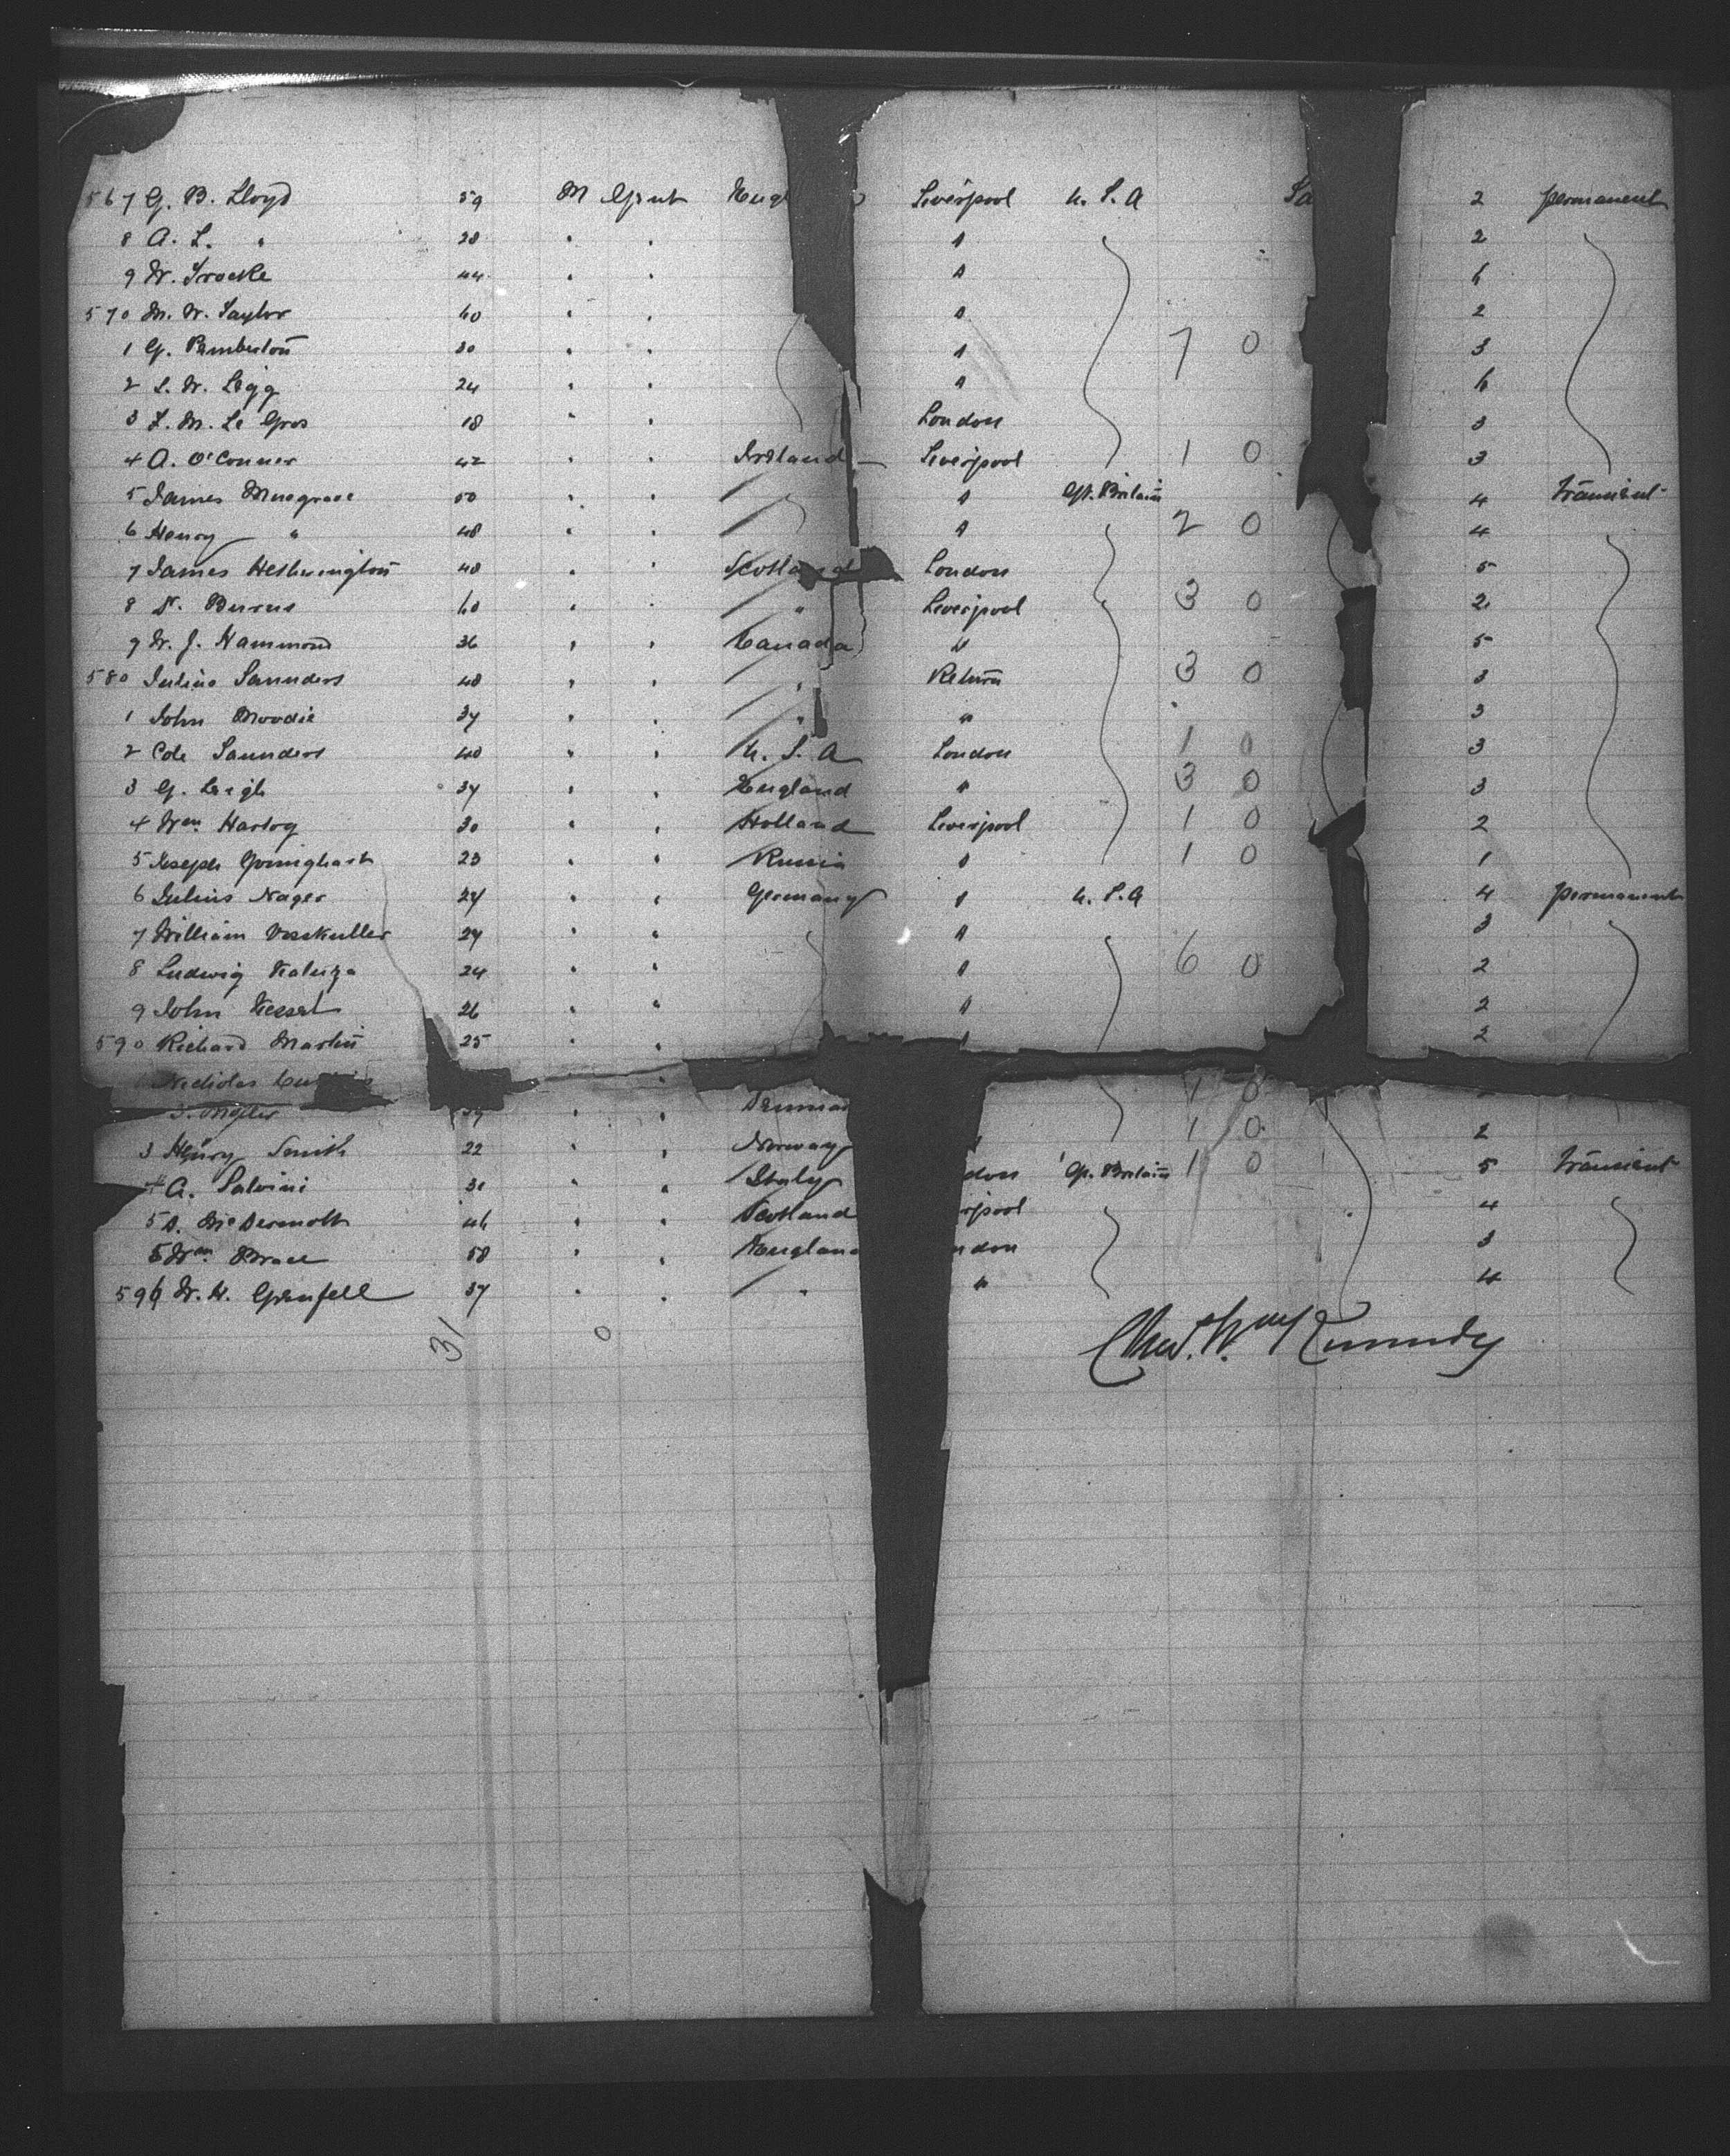 567 G. B. Lloyd 59 M Gent Engl Liverpool U.S.A Sa 2 permanent
8 A. L. " 28 " " " 2
9 W. Trocke 44 " " " 6
570 M. W. Taylor 40 " " " 2
1 G. Pemberton 30 " " " 7 0 3
2 S. W. Legg 24 " " " 6
3 L. M. Le Gros 18 " " London 3
4 A. O'Conner 42 " " Ireland Liverpool 1 0 3
5 James Musgrave 50 " " " Gt. Britain 4 transient
6 Henry " 48 " " " 2 0 4
7 James Hetherington 48 " " Scotland London 5
8 Burns 60 " " " Liverpool 3 0 2
9 W. J. Hammond 36 " " Canada " 5
580 Julius Saunders 48 " " " Return 3 0 3
1 John Moodie 37 " " " " 3
2 Cole Saunders 40 " " U.S.A London 1 0 3
3 G. Leigh 34 " " England " 3 0 3
4 Wm Hartog 30 " " Holland Liverpool 1 0 2
5 Joseph 23 " " Russia " 1 0 1
6 Julius Nager 24 " " Germany " U.S.A 4 permanent
7 William 29 " " " 3
8 Ludwig Kaluza 24 " " " 6 0 2
9 John 26 " " " 2
590 Richard Martin 25 " " " 2
Nicholas " 1 0
" " Denmar 1 0
3 Henry Smith 22 " " Norway 1 0 2
4 A. Salvini 31 " " Italy don Gt. Britain 1 0 5 transient
5 McDermott 46 " " Scotland rpool 4
6 Wm Brace 58 " " England ndon 3
596 W. H. Grenfell 37 " " " " 4
31 0
Chas. Wm Kennedy